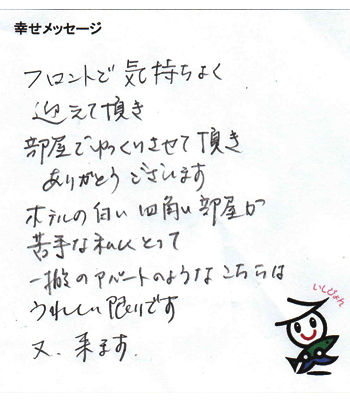 幸せメッセージ
フロントで気持ちよく
迎えて頂き
部屋でゆっくりさせて頂き
ありがとうございます
ホテルの白い四角い部屋が
苦手な私にとって
一般のアパートのようなこちらは
うれしい限りです
又、来ます
いしぴょん